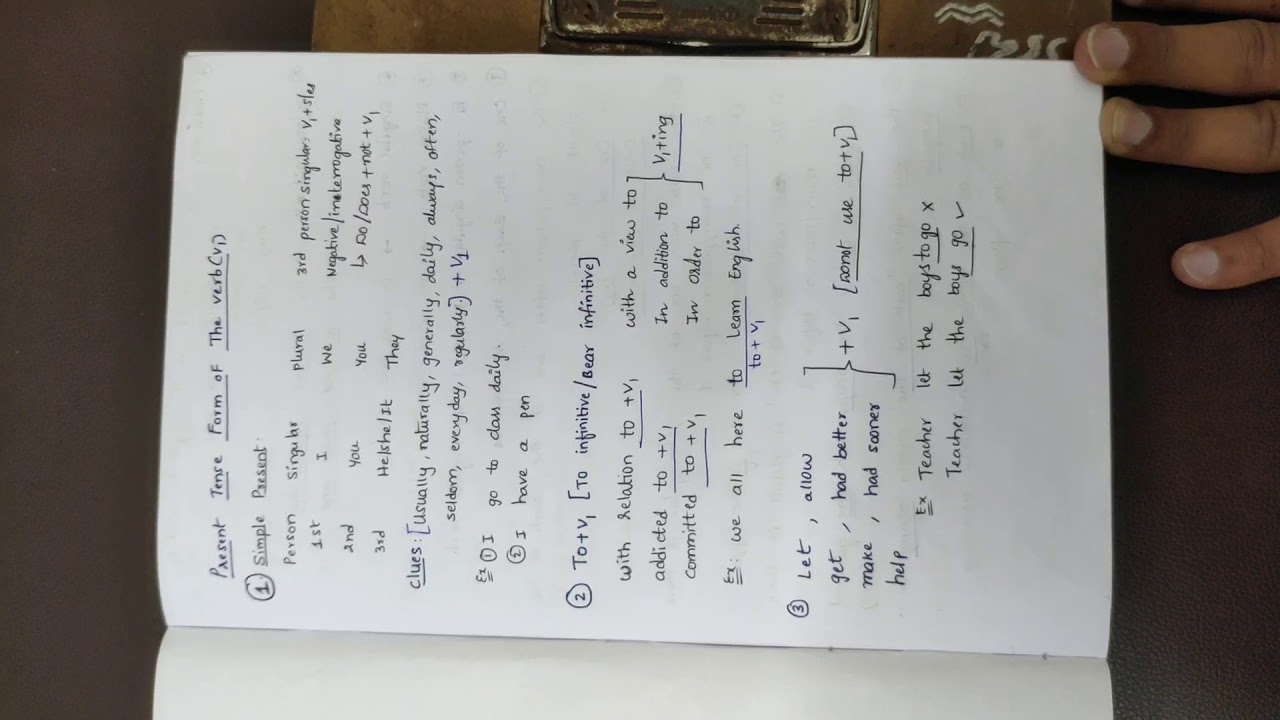 Present Tense Form of The verb(V1)
① Simple Present:
Person Singular plural 3rd person singular: V1+s/es
1st I We Negative/interrogative
2nd You You ↳ Do/Does+not+V1
3rd He/she/It They
Clues: [Usually, naturally, generally, daily, always, often,
seldom, everyday, regularly] + V1
Ex ① I go to class daily.
② I have a pen
② To+V1 [To infinitive/Bear infinitive]
with Relation to +V1 with a view to
addicted to +V1 In addition to V1+ing
committed to +V1 In order to
Ex: we all here to learn English.
to+V1
③ Let, allow
get, had better
make, had sooner +V1 [Donot use to+V1]
help
Ex Teacher let the boys to go ×
Teacher let the boys go ✓